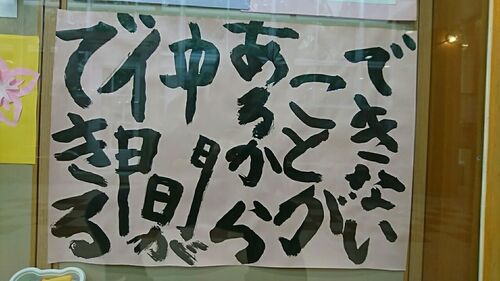 できない
ことが
あるから
仲間が
できる